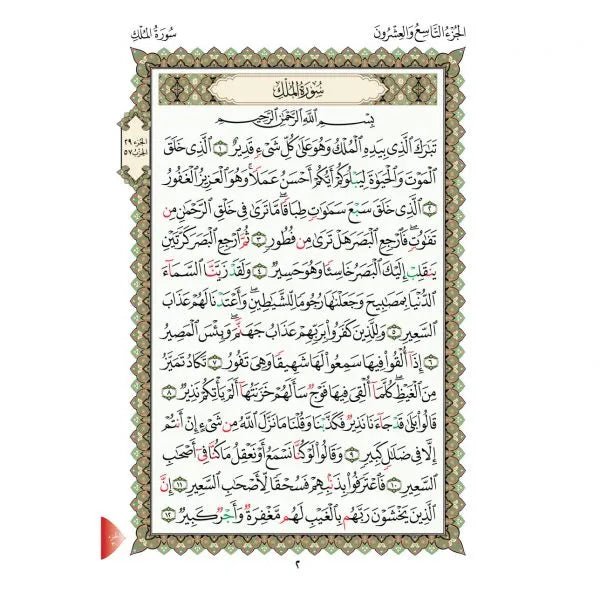 الجُزْءُ التَّاسِعُ وَالعِشْرُونَ
سُورَةُ المُلْكِ
سُورَةُ المُلْكِ
بِسْمِ اللَّهِ الرَّحْمَٰنِ الرَّحِيمِ
تَبَٰرَكَ ٱلَّذِي بِيَدِهِ ٱلْمُلْكُ وَهُوَ عَلَىٰ كُلِّ شَيْءٍ قَدِيرٌ ١ ٱلَّذِي خَلَقَ
ٱلْمَوْتَ وَٱلْحَيَوٰةَ لِيَبْلُوَكُمْ أَيُّكُمْ أَحْسَنُ عَمَلًا ۚ وَهُوَ ٱلْعَزِيزُ ٱلْغَفُورُ
٢ ٱلَّذِي خَلَقَ سَبْعَ سَمَٰوَٰتٍ طِبَاقًا ۖ مَّا تَرَىٰ فِي خَلْقِ ٱلرَّحْمَٰنِ مِن
تَفَٰوُتٍ ۖ فَٱرْجِعِ ٱلْبَصَرَ هَلْ تَرَىٰ مِن فُطُورٍ ٣ ثُمَّ ٱرْجِعِ ٱلْبَصَرَ كَرَّتَيْنِ
يَنقَلِبْ إِلَيْكَ ٱلْبَصَرُ خَاسِئًا وَهُوَ حَسِيرٌ ٤ وَلَقَدْ زَيَّنَّا ٱلسَّمَآءَ
ٱلدُّنْيَا بِمَصَٰبِيحَ وَجَعَلْنَٰهَا رُجُومًا لِّلشَّيَٰطِينِ ۖ وَأَعْتَدْنَا لَهُمْ عَذَابَ
ٱلسَّعِيرِ ٥ وَلِلَّذِينَ كَفَرُوا۟ بِرَبِّهِمْ عَذَابُ جَهَنَّمَ ۖ وَبِئْسَ ٱلْمَصِيرُ
٦ إِذَآ أُلْقُوا۟ فِيهَا سَمِعُوا۟ لَهَا شَهِيقًا وَهِيَ تَفُورُ ٧ تَكَادُ تَمَيَّزُ
مِنَ ٱلْغَيْظِ ۖ كُلَّمَآ أُلْقِيَ فِيهَا فَوْجٌ سَأَلَهُمْ خَزَنَتُهَآ أَلَمْ يَأْتِكُمْ نَذِيرٌ ٨
قَالُوا۟ بَلَىٰ قَدْ جَآءَنَا نَذِيرٌ فَكَذَّبْنَا وَقُلْنَا مَا نَزَّلَ ٱللَّهُ مِن شَيْءٍ إِنْ أَنتُمْ
إِلَّا فِي ضَلَٰلٍ كَبِيرٍ ٩ وَقَالُوا۟ لَوْ كُنَّا نَسْمَعُ أَوْ نَعْقِلُ مَا كُنَّا فِيٓ أَصْحَٰبِ
ٱلسَّعِيرِ ١٠ فَٱعْتَرَفُوا۟ بِذَنۢبِهِمْ فَسُحْقًا لِّأَصْحَٰبِ ٱلسَّعِيرِ ١١ إِنَّ
ٱلَّذِينَ يَخْشَوْنَ رَبَّهُم بِٱلْغَيْبِ لَهُم مَّغْفِرَةٌ وَأَجْرٌ كَبِيرٌ ١٢
الجزء ٢٩
الحزب ٥٧
٢